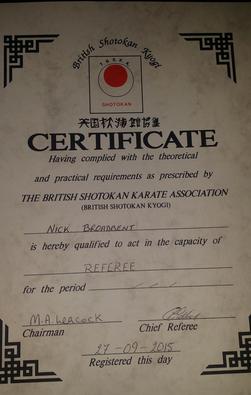 British Shotokan Kyogi
SHOTOKAN
CERTIFICATE
Having complied with the theoretical
and practical requirements as prescribed by
THE BRITISH SHOTOKAN KARATE ASSOCIATION
(BRITISH SHOTOKAN KYOGI)
NICK BROADBENT
is hereby qualified to act in the capacity of
REFEREE
for the period
M.A. Leacock
Chairman Chief Referee
27-09-2015
Registered this day